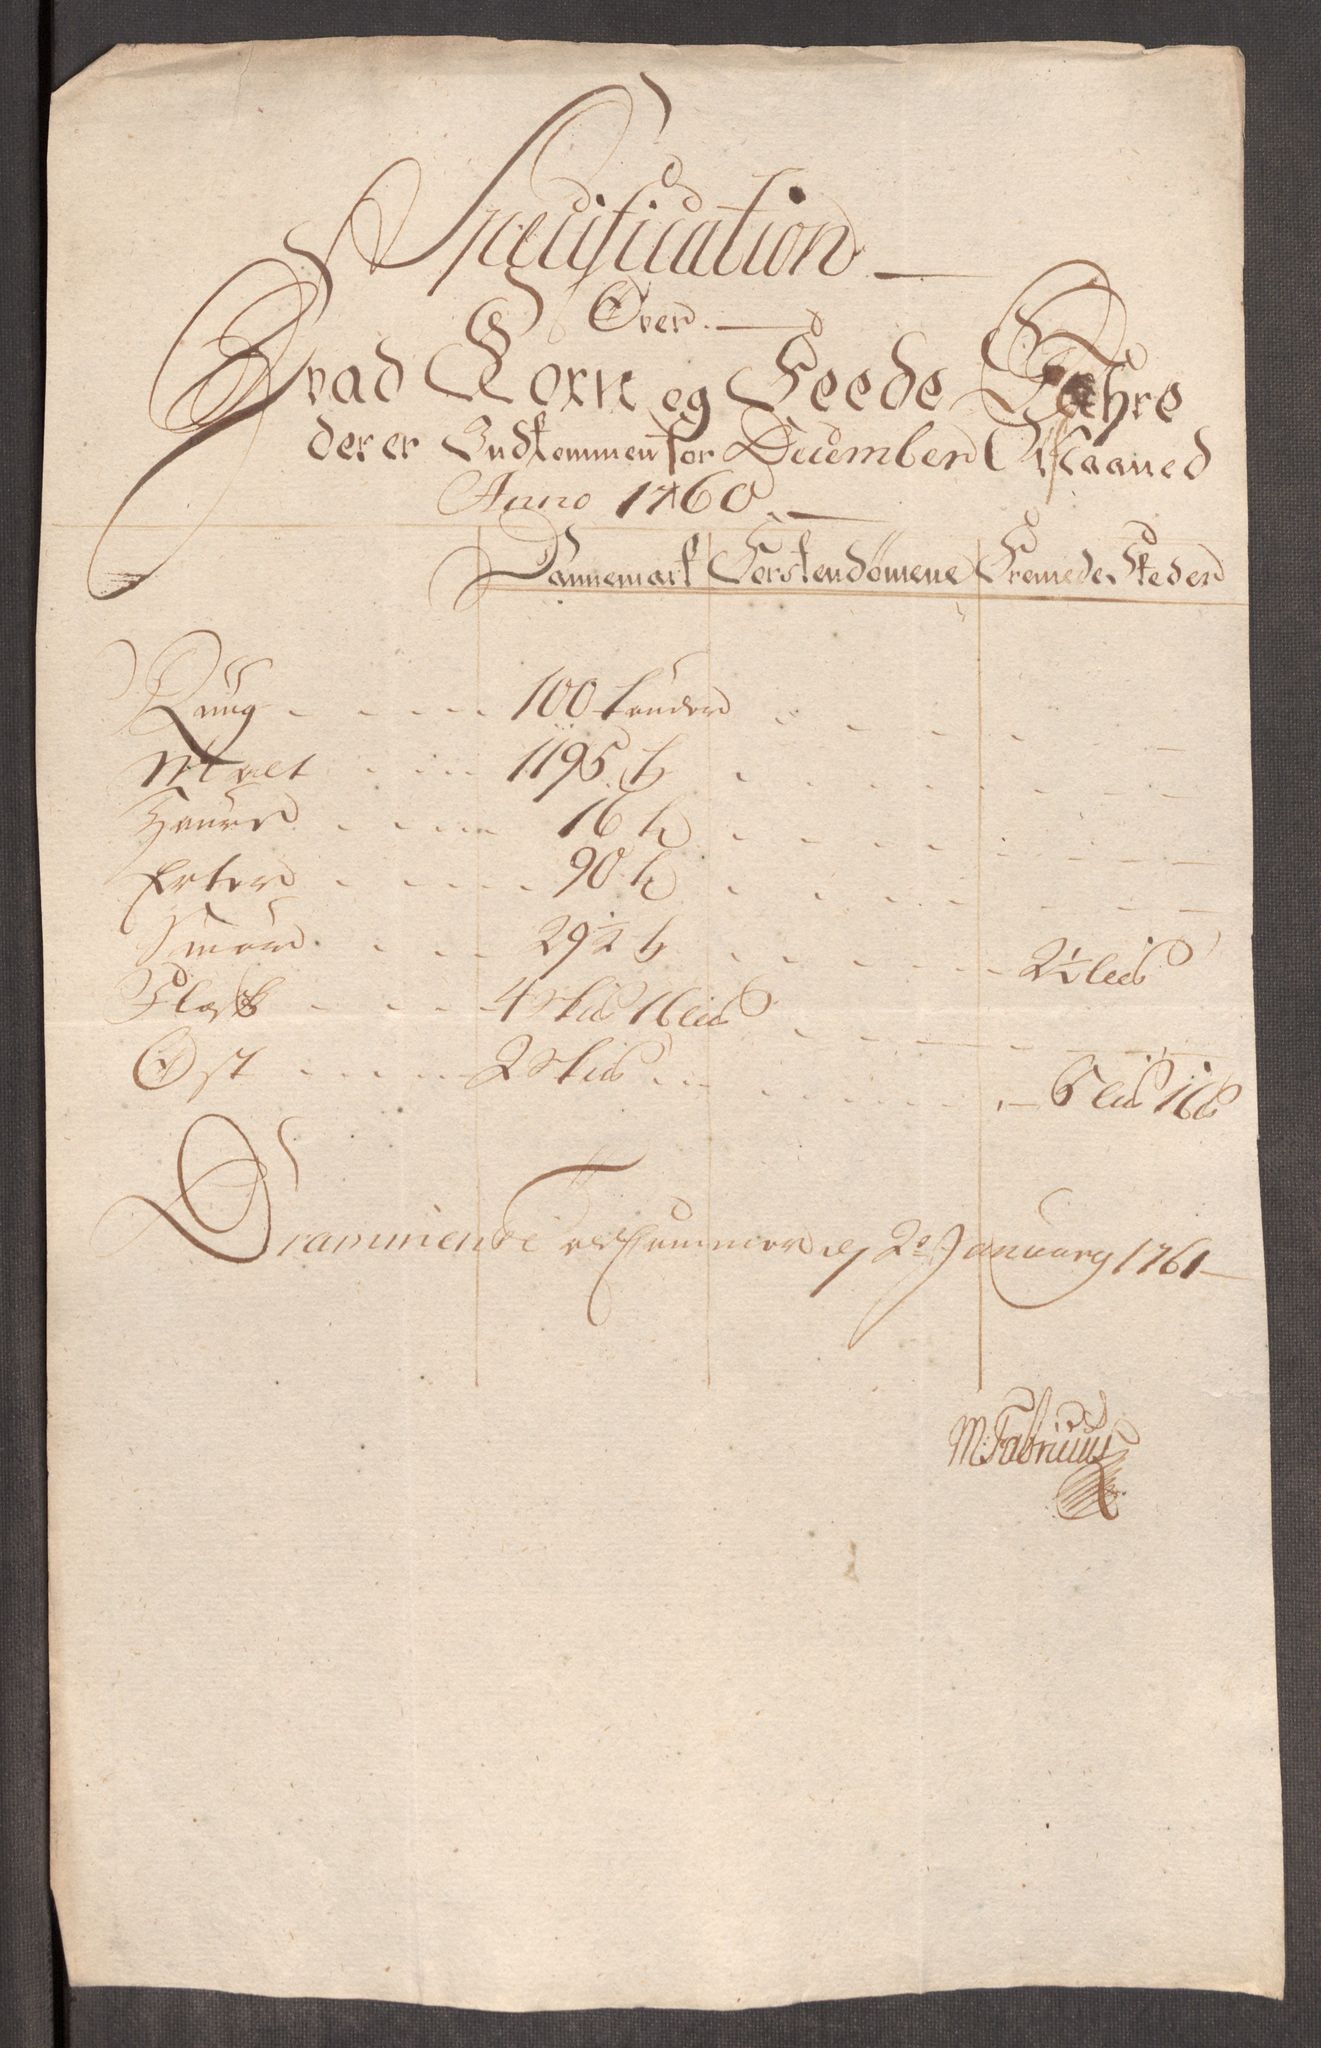 Specification
Over
Hvad Korn og Feede Vahre
der er Indkommen for December Maaned
Anno 1760
Dannemark Førstendömene Fremede Steder
Rúug 100 tønder
Malt 1195 t
Haver 16 t
Erter 90 t
Smør 29 1/2 t 2 1/2 lis
Flæsk 4 skis 16 lis
Ost 2 skis 6 lis
Drammens Toldkammer d 2e January 1761
M Fabritius